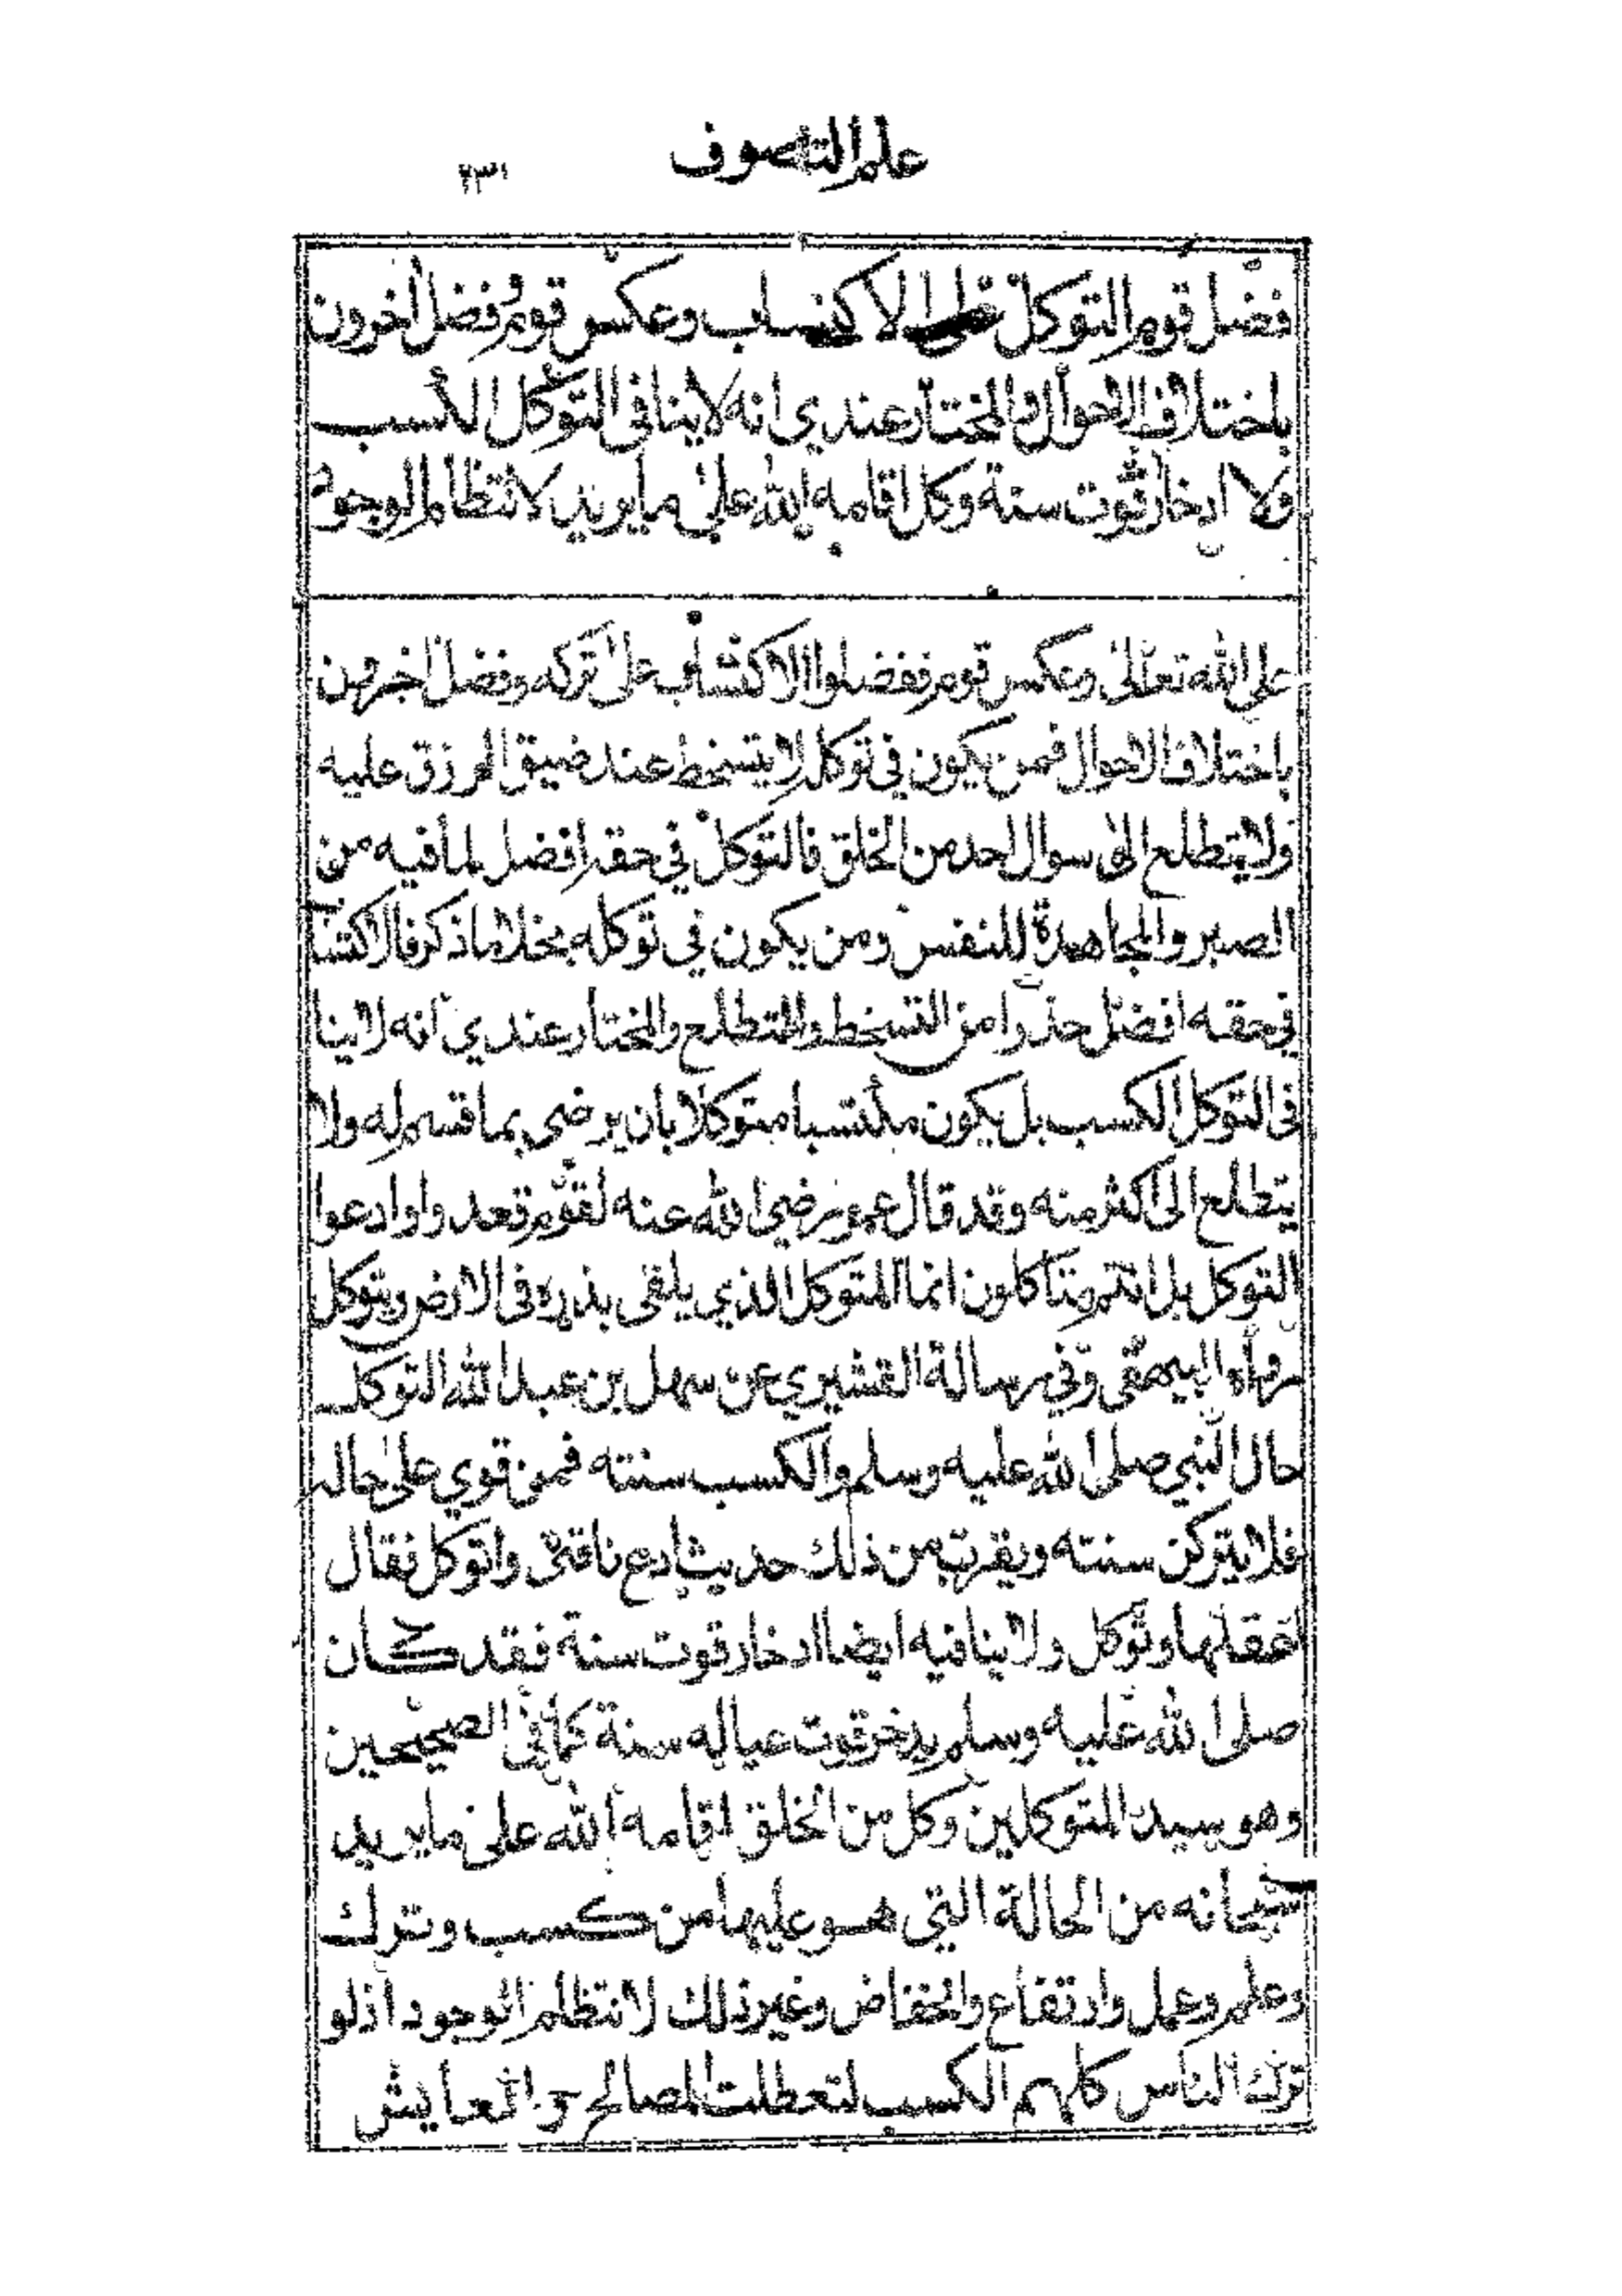 علم التصوف
٢٣١
فضل قوم التوكل على الاكتساب وعكس قوم وفضل آخرون
باختلاف الاحوال والمختار عندي انه لا ينافي التوكل الكسب
ولا ادخار قوت سنة وكل اقامه الله على ما يريد لانتظام الوجود
على الله تعالى وعكس قوم ففضلوا الاكتساب على تركه وفضل اخرون
باختلاف الاحوال فمن يكون في توكله لا يتسخط عند ضيق الرزق عليه
ولا يتطلع الى سوال احد من الخلق فالتوكل في حقه افضل لما فيه من
الصبر والمجاهدة للنفس ومن يكون في توكله بخلاف ما ذكر فالاكتسا
في حقه افضل حذرا من التسخط والتطلع والمختار عندي انه لا ينا
في التوكل الكسب بل يكون مكتسبا متوكلا بان يرضى بما قسم له ولا
يتطلع الى اكثر منه وقد قال عمر رضي الله عنه لقوم قعدوا وادعوا
التوكل بل انتم متأكلون انما المتوكل الذي يلقى بذره في الارض ويتوكل
رواه البيهقى وفي رسالة القشيري عن سهل بن عبد الله التوكل
حال النبي صلى الله عليه وسلم والكسب سنته فمن قوي على حاله
فلا يتركن سنته ويقرب من ذلك حديث ادع ناقتى واتوكل فقال
اعقلها وتوكل ولا ينافيه ايضا ادخار قوت سنة فقد كان
صلى الله عليه وسلم يدخر قوت عياله سنة كما في الصحيحين
وهو سيد المتوكلين وكل من الخلق اقامه الله على ما يريد
سبحانه من الحالة التي هو عليها من كسب وترك
وعلم وعمل وارتفاع وانخفاض وغير ذلك لانتظام الوجود اذ لو
ترك الناس كلهم الكسب لتعطلت المصالح والمعايش